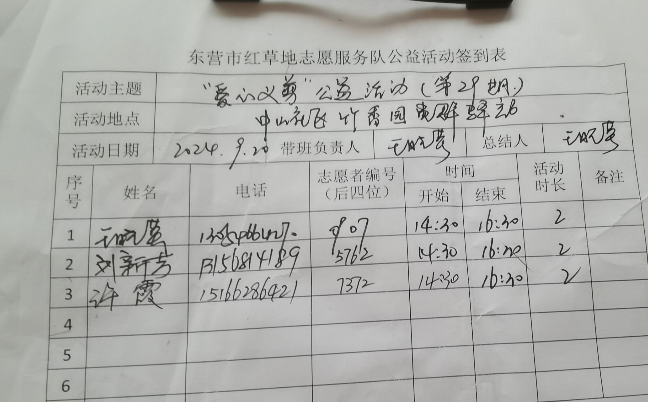 东营市红草地志愿服务队公益活动签到表
活动主题 "爱心义剪"公益活动(第29期)
活动地点 中山社区竹香园
活动日期 2024.9.20 带班负责人 总结人
序号 姓名 电话 志愿者编号(后四位) 时间 开始 结束 活动时长 备注
1 907 14:30 16:30 2
2 刘新芳 13156814189 5762 14:30 16:30 2
3 许霞 15166286421 7372 14:30 16:30 2
4
5
6